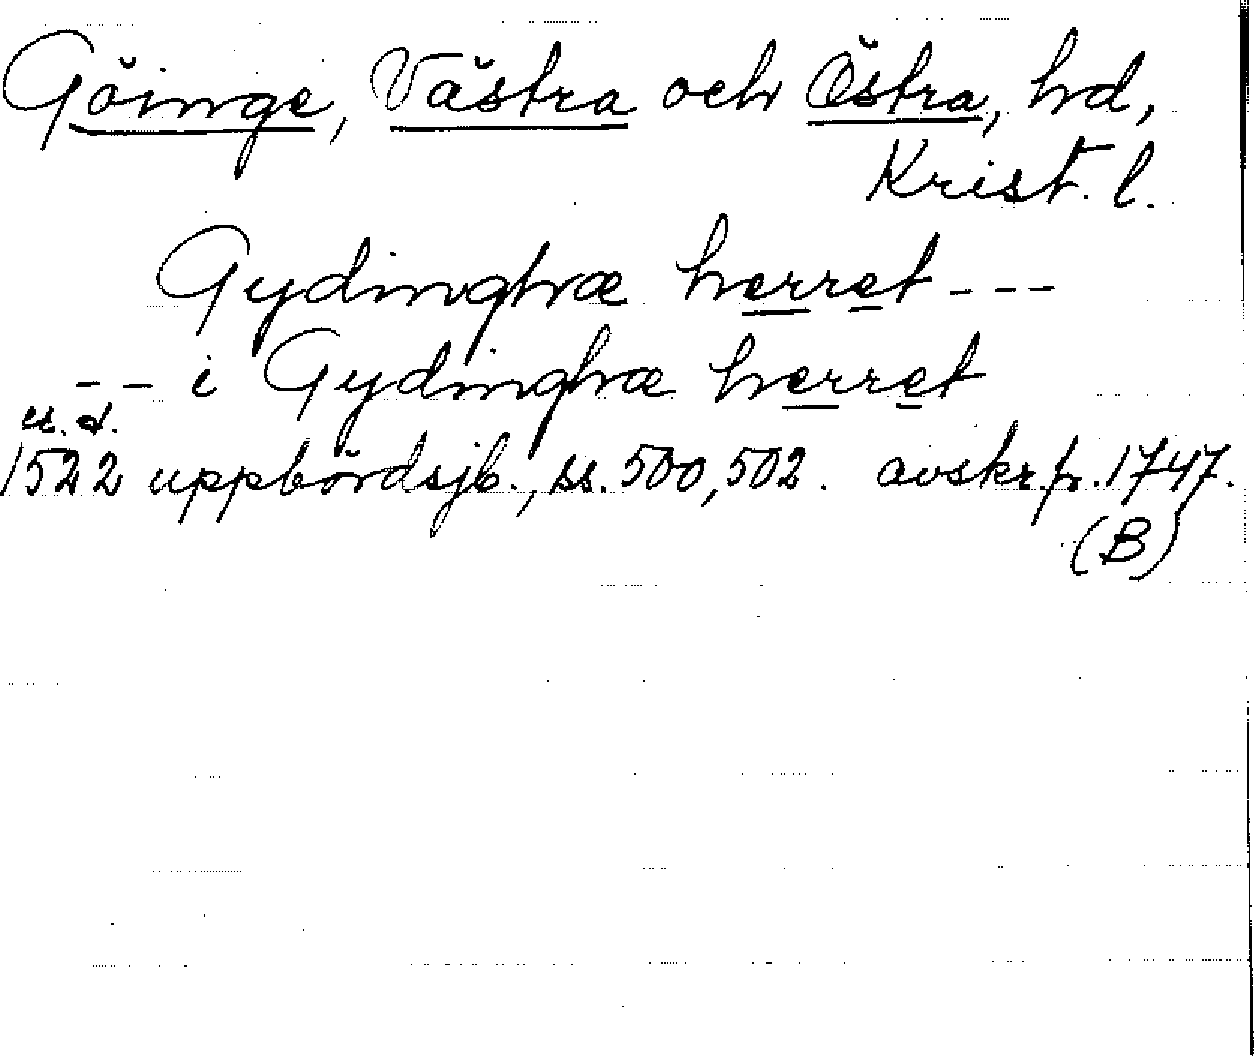 Göinge, Västra och Östra, hd,
Krist. l.
Gydinghæ herret - - -
- - i Gydinghæ herret
u. d.
1522 uppbördsjb., ss. 500, 502. avskr. fr. 1747.
(B)